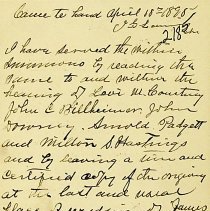 Came to hand April 10th 1885
2.18
I have served the within
Summons by reading the
same to and within the
hearing of Levi M. Courtney
John C Billheimer John
Downey, Arnold Padgett
and Milton S Hastings
and by leaving a true and
certified copy of the original
at the last and usual
place of residence of James